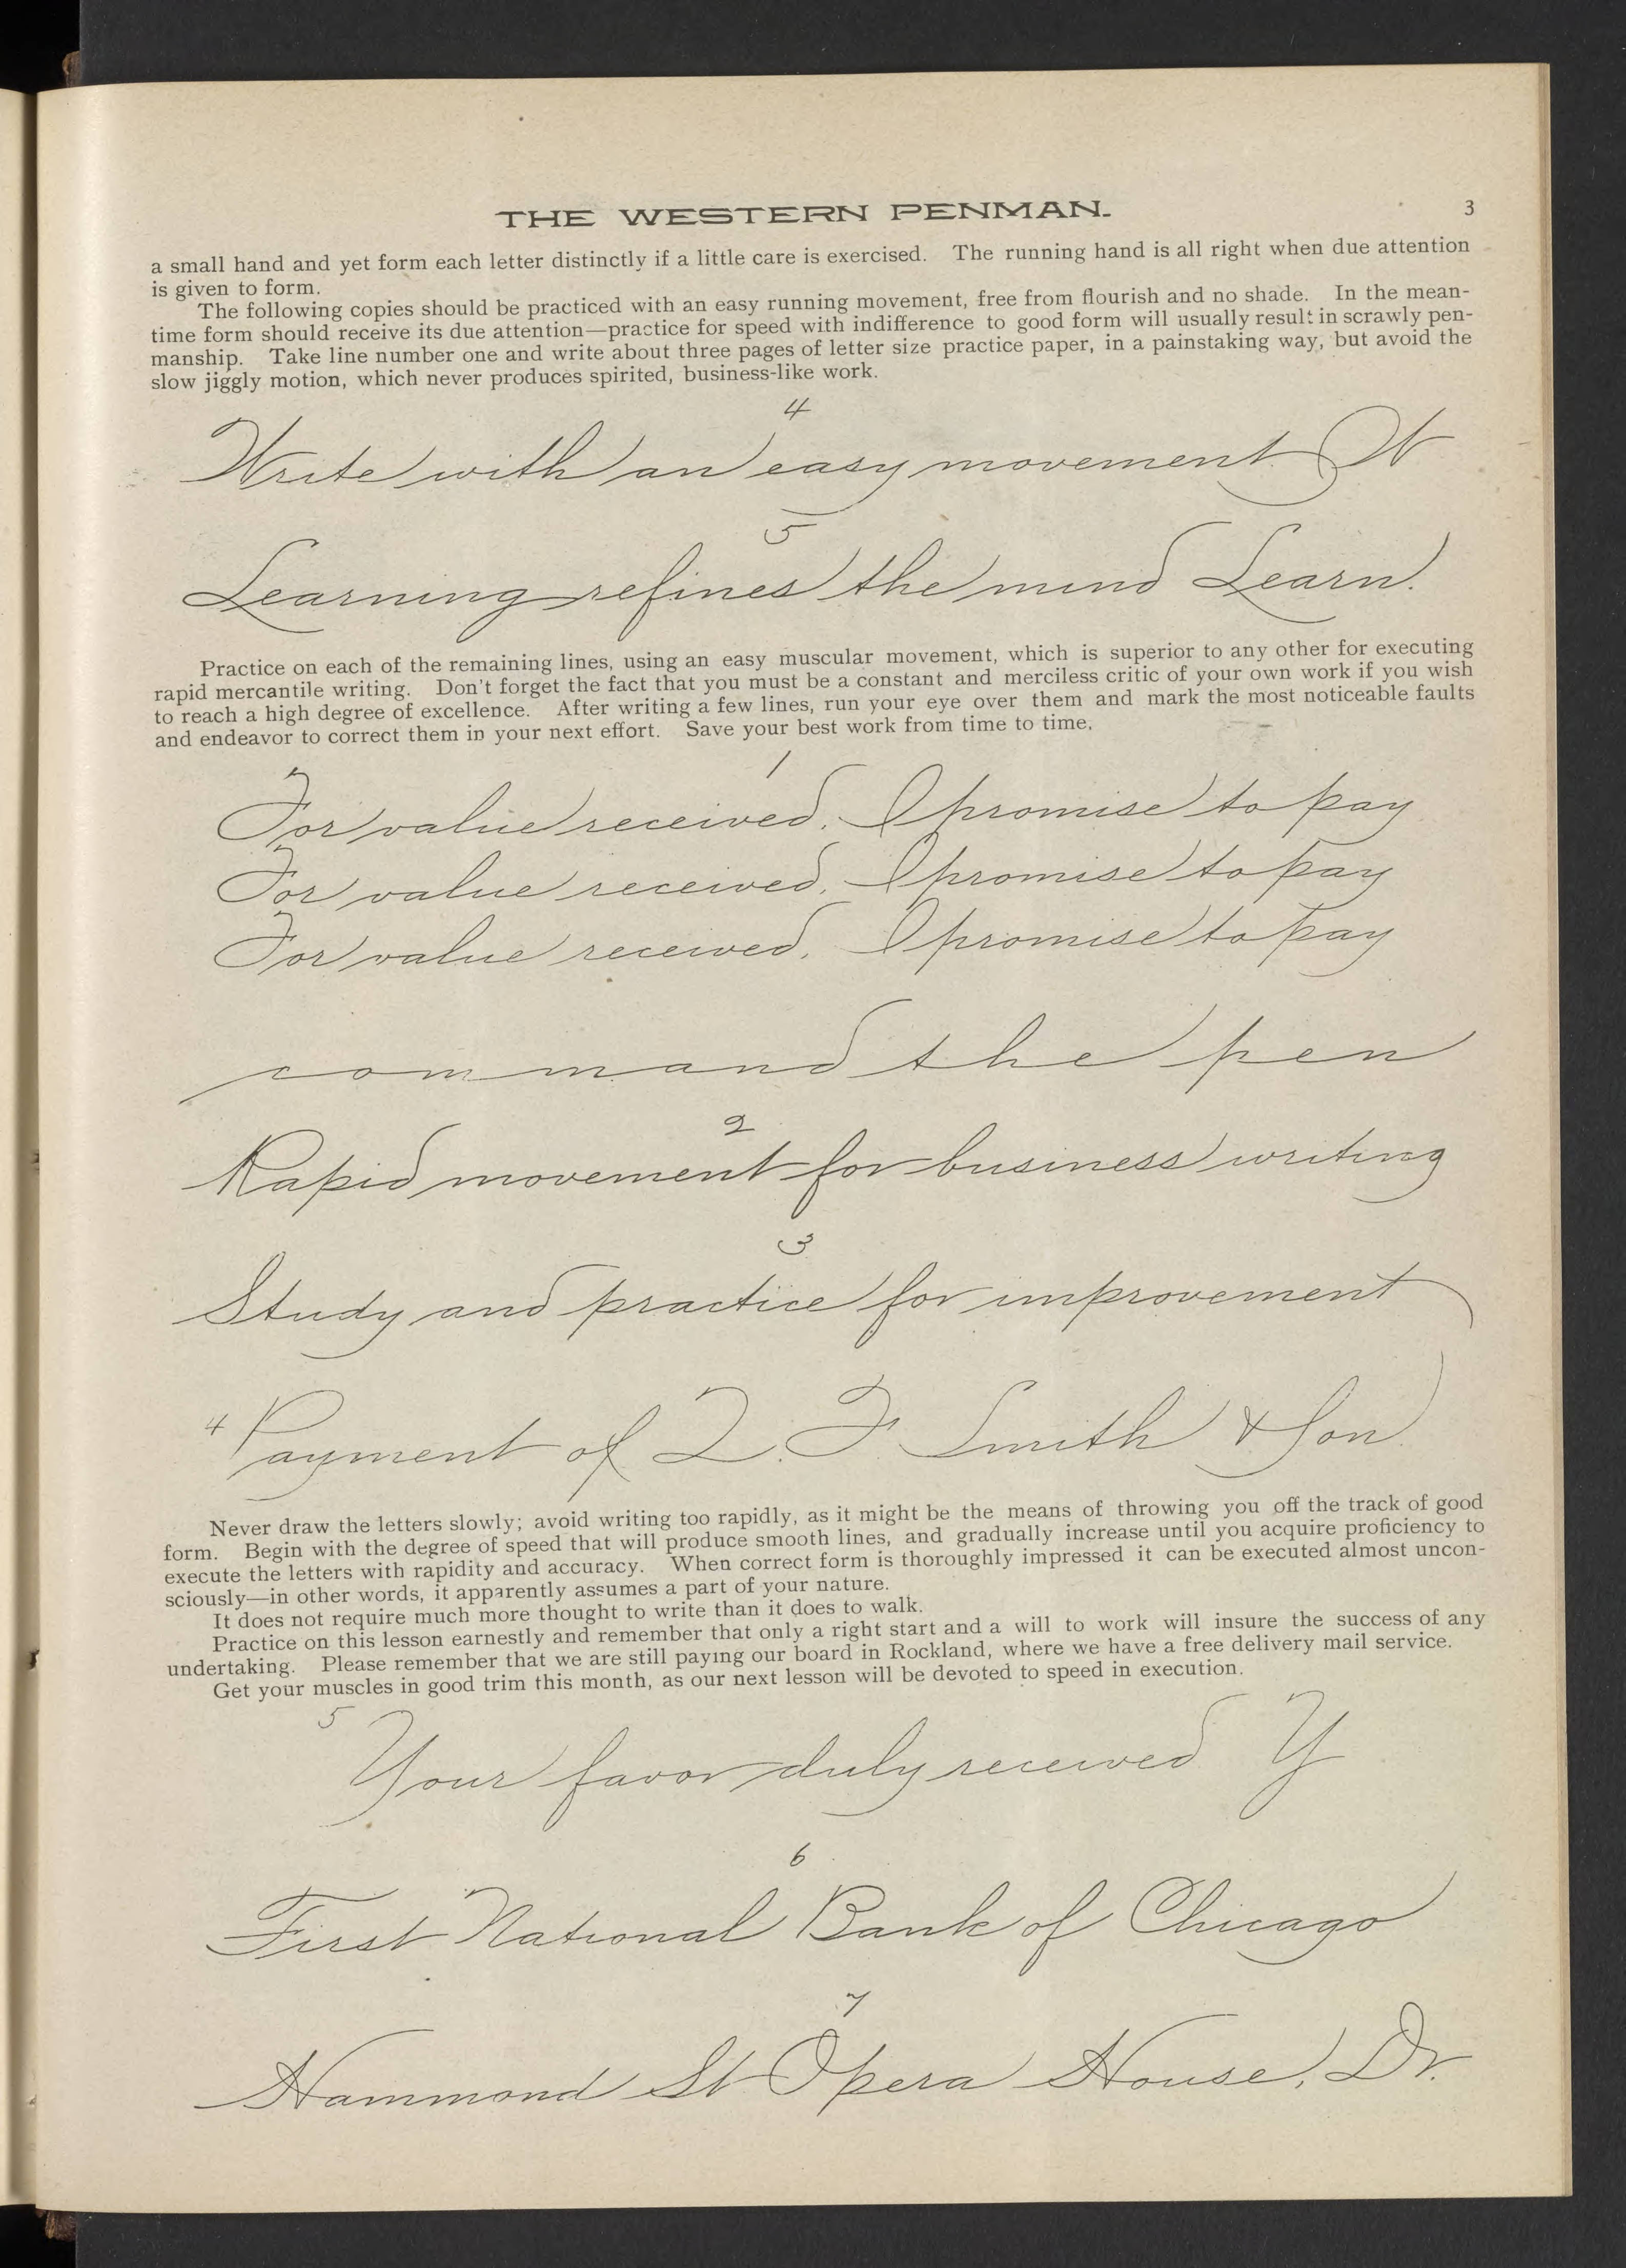 THE WESTERN PENMAN.
3
a small hand and yet form each letter distinctly if a little care is exercised. The running hand is all right when due attention
is given to form.
The following copies should be practiced with an easy running movement, free from flourish and no shade. In the mean-
time form should receive its due attention—practice for speed with indifference to good form will usually result in scrawly pen-
manship. Take line number one and write about three pages of letter size practice paper, in a painstaking way, but avoid the
slow jiggly motion, which never produces spirited, business-like work.
4
Write with an easy movement. W
5
Learning refines the mind Learn.
Practice on each of the remaining lines, using an easy muscular movement, which is superior to any other for executing
rapid mercantile writing. Don't forget the fact that you must be a constant and merciless critic of your own work if you wish
to reach a high degree of excellence. After writing a few lines, run your eye over them and mark the most noticeable faults
and endeavor to correct them in your next effort. Save your best work from time to time.
1
For value received, I promise to pay
For value received, I promise to pay
For value received, I promise to pay
command the pen
2
Rapid movement for business writing
3
Study and practice for improvement
4 Payment of Q. F. Smith & Son.
Never draw the letters slowly; avoid writing too rapidly, as it might be the means of throwing you off the track of good
form. Begin with the degree of speed that will produce smooth lines, and gradually increase until you acquire proficiency to
execute the letters with rapidity and accuracy. When correct form is thoroughly impressed it can be executed almost uncon-
sciously—in other words, it apparently assumes a part of your nature.
It does not require much more thought to write than it does to walk.
Practice on this lesson earnestly and remember that only a right start and a will to work will insure the success of any
undertaking. Please remember that we are still paying our board in Rockland, where we have a free delivery mail service.
Get your muscles in good trim this month, as our next lesson will be devoted to speed in execution.
5
Your favor duly received Y
6
First National Bank of Chicago
7
Hammond St. Opera House, Dr.